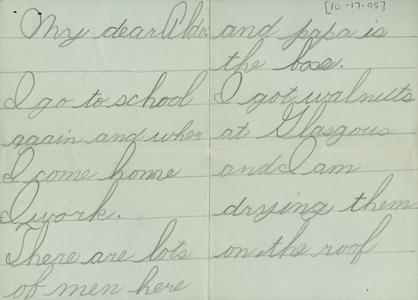 My dear Aldo:
I go to school
again and when
I come home
I work.
There are lots
of men here
[10-17-05]
and papa is
the boss.
I got walnuts
at Glasgous
and I am
drying them
on the roof